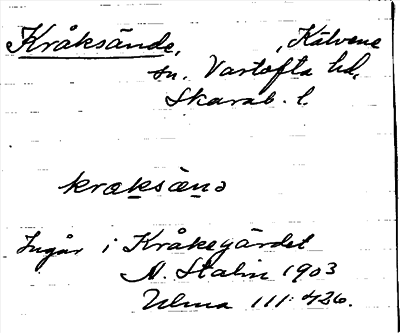 Kråksände, , Kälvene
sn. Vartofta hd,
Skarab. l.
kræksæṇə
Ingår i Kråkegärdet
N. Stalin 1903
Ulma 111:426.